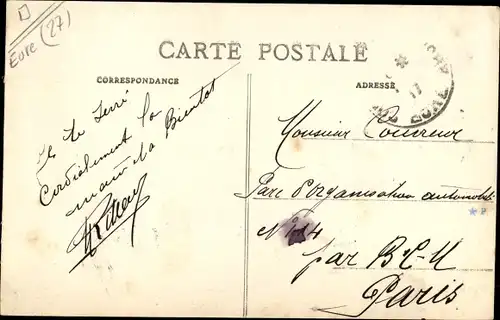 Eure (27)
CARTE POSTALE
CORRESPONDANCE
ADRESSE
Je te serre
Cordialement la
main A Bientot
Monsieur
Parc d'organisation automobile
N°
par B.C.M
Paris